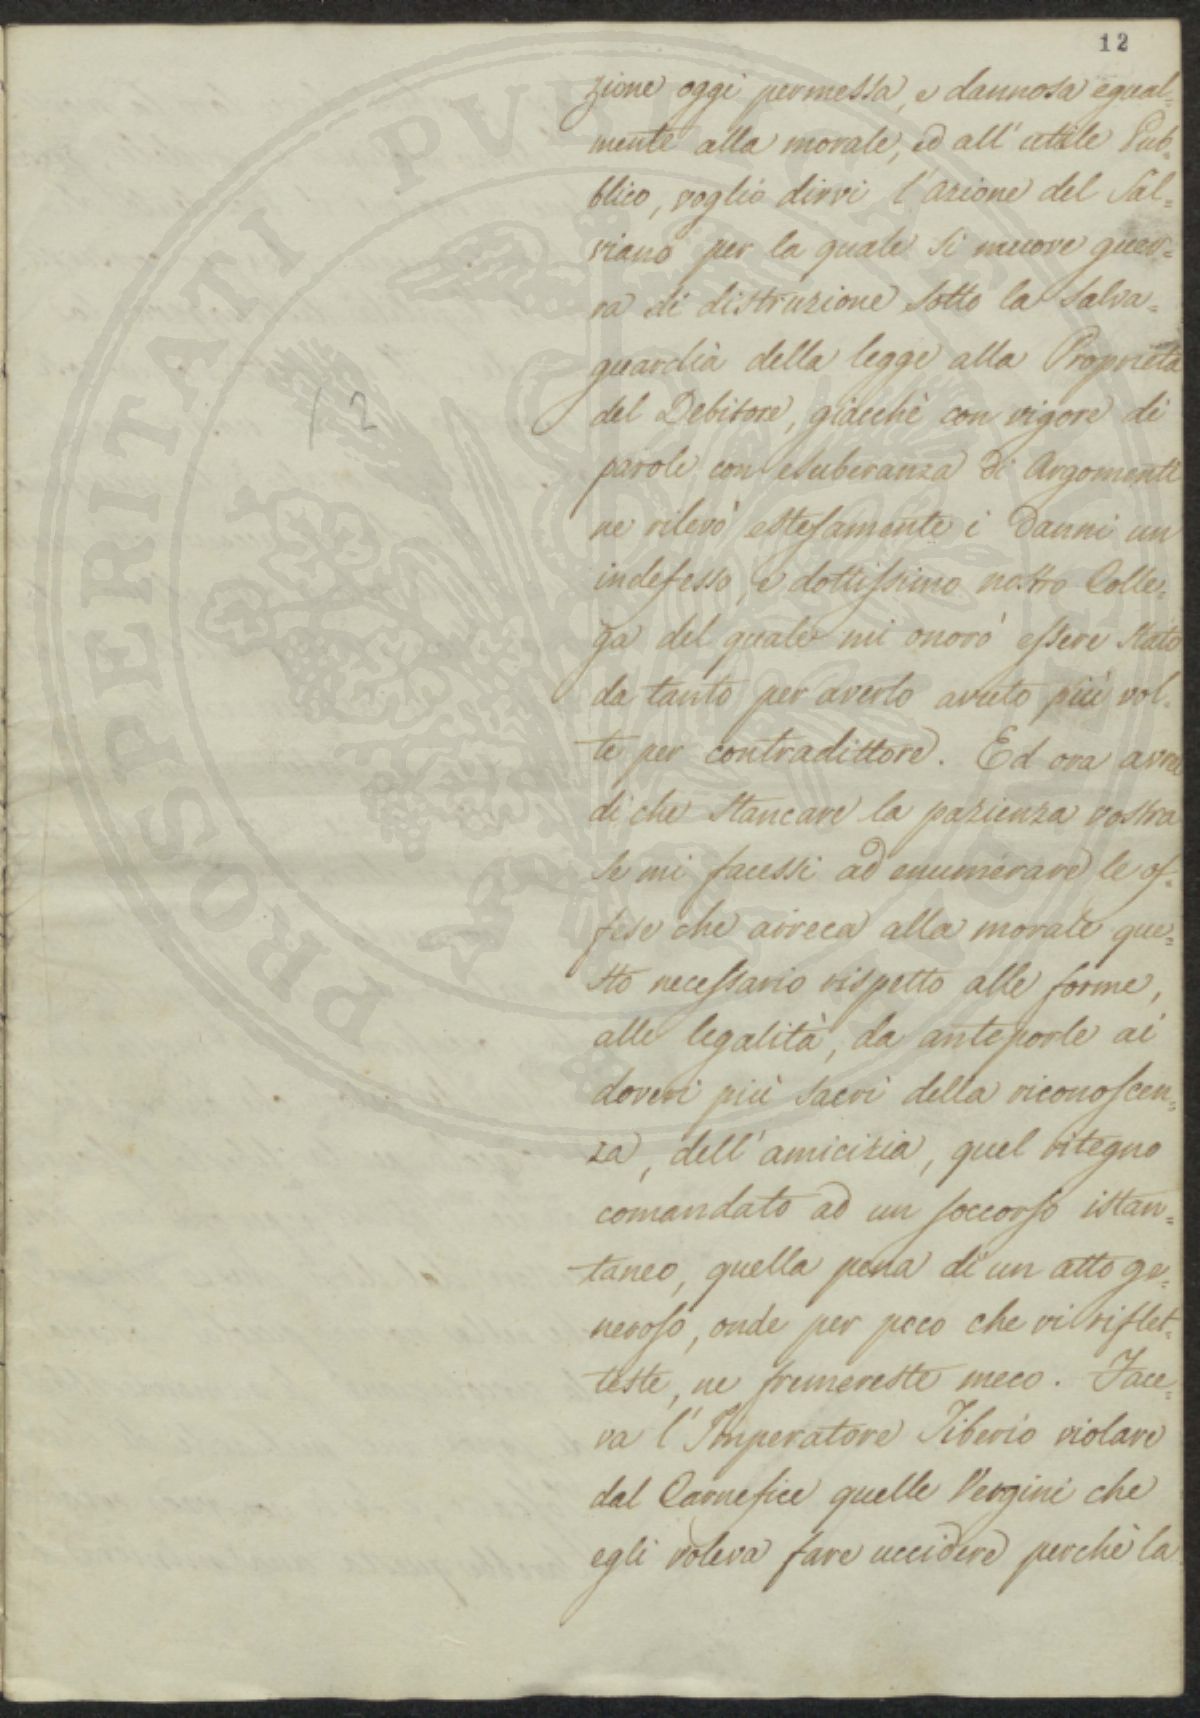 12
zione oggi permessa, e dannosa egual=
mente alla morale, ed all' utile Pub=
blico, voglio dirvi l'azione del Sal=
viano per la quale si muove guer=
ra di distruzione sotto la salva=
guardia della legge alla Proprietà
del Debitore, giacchè con vigore di
parole con esuberanza di Argomenti
ne rilevò estesamente i danni un
indefesso, e dottissimo nostro Colle=
ga del quale mi onorò essere stato
da tanto per averlo avuto più vol=
te per contradittore. Ed ora avrei
di che stancare la pazienza vostra
se mi facessi ad enumerare le of=
fese che arreca alla morale que=
sto necessario rispetto alle forme,
alle legalità, da anteporle ai
doveri più sacri della riconoscen=
za, dell'amicizia, quel ritegno
comandato ad un soccorso istan=
taneo, quella pena di un atto ge=
neroso, onde per poco che vi riflet=
teste, ne fremereste meco. Face=
va l'Imperatore Tiberio violare
dal Carnefice quelle Vergini che
egli voleva fare uccidere perchè la
12
PROSPERITATI PVBLICAE